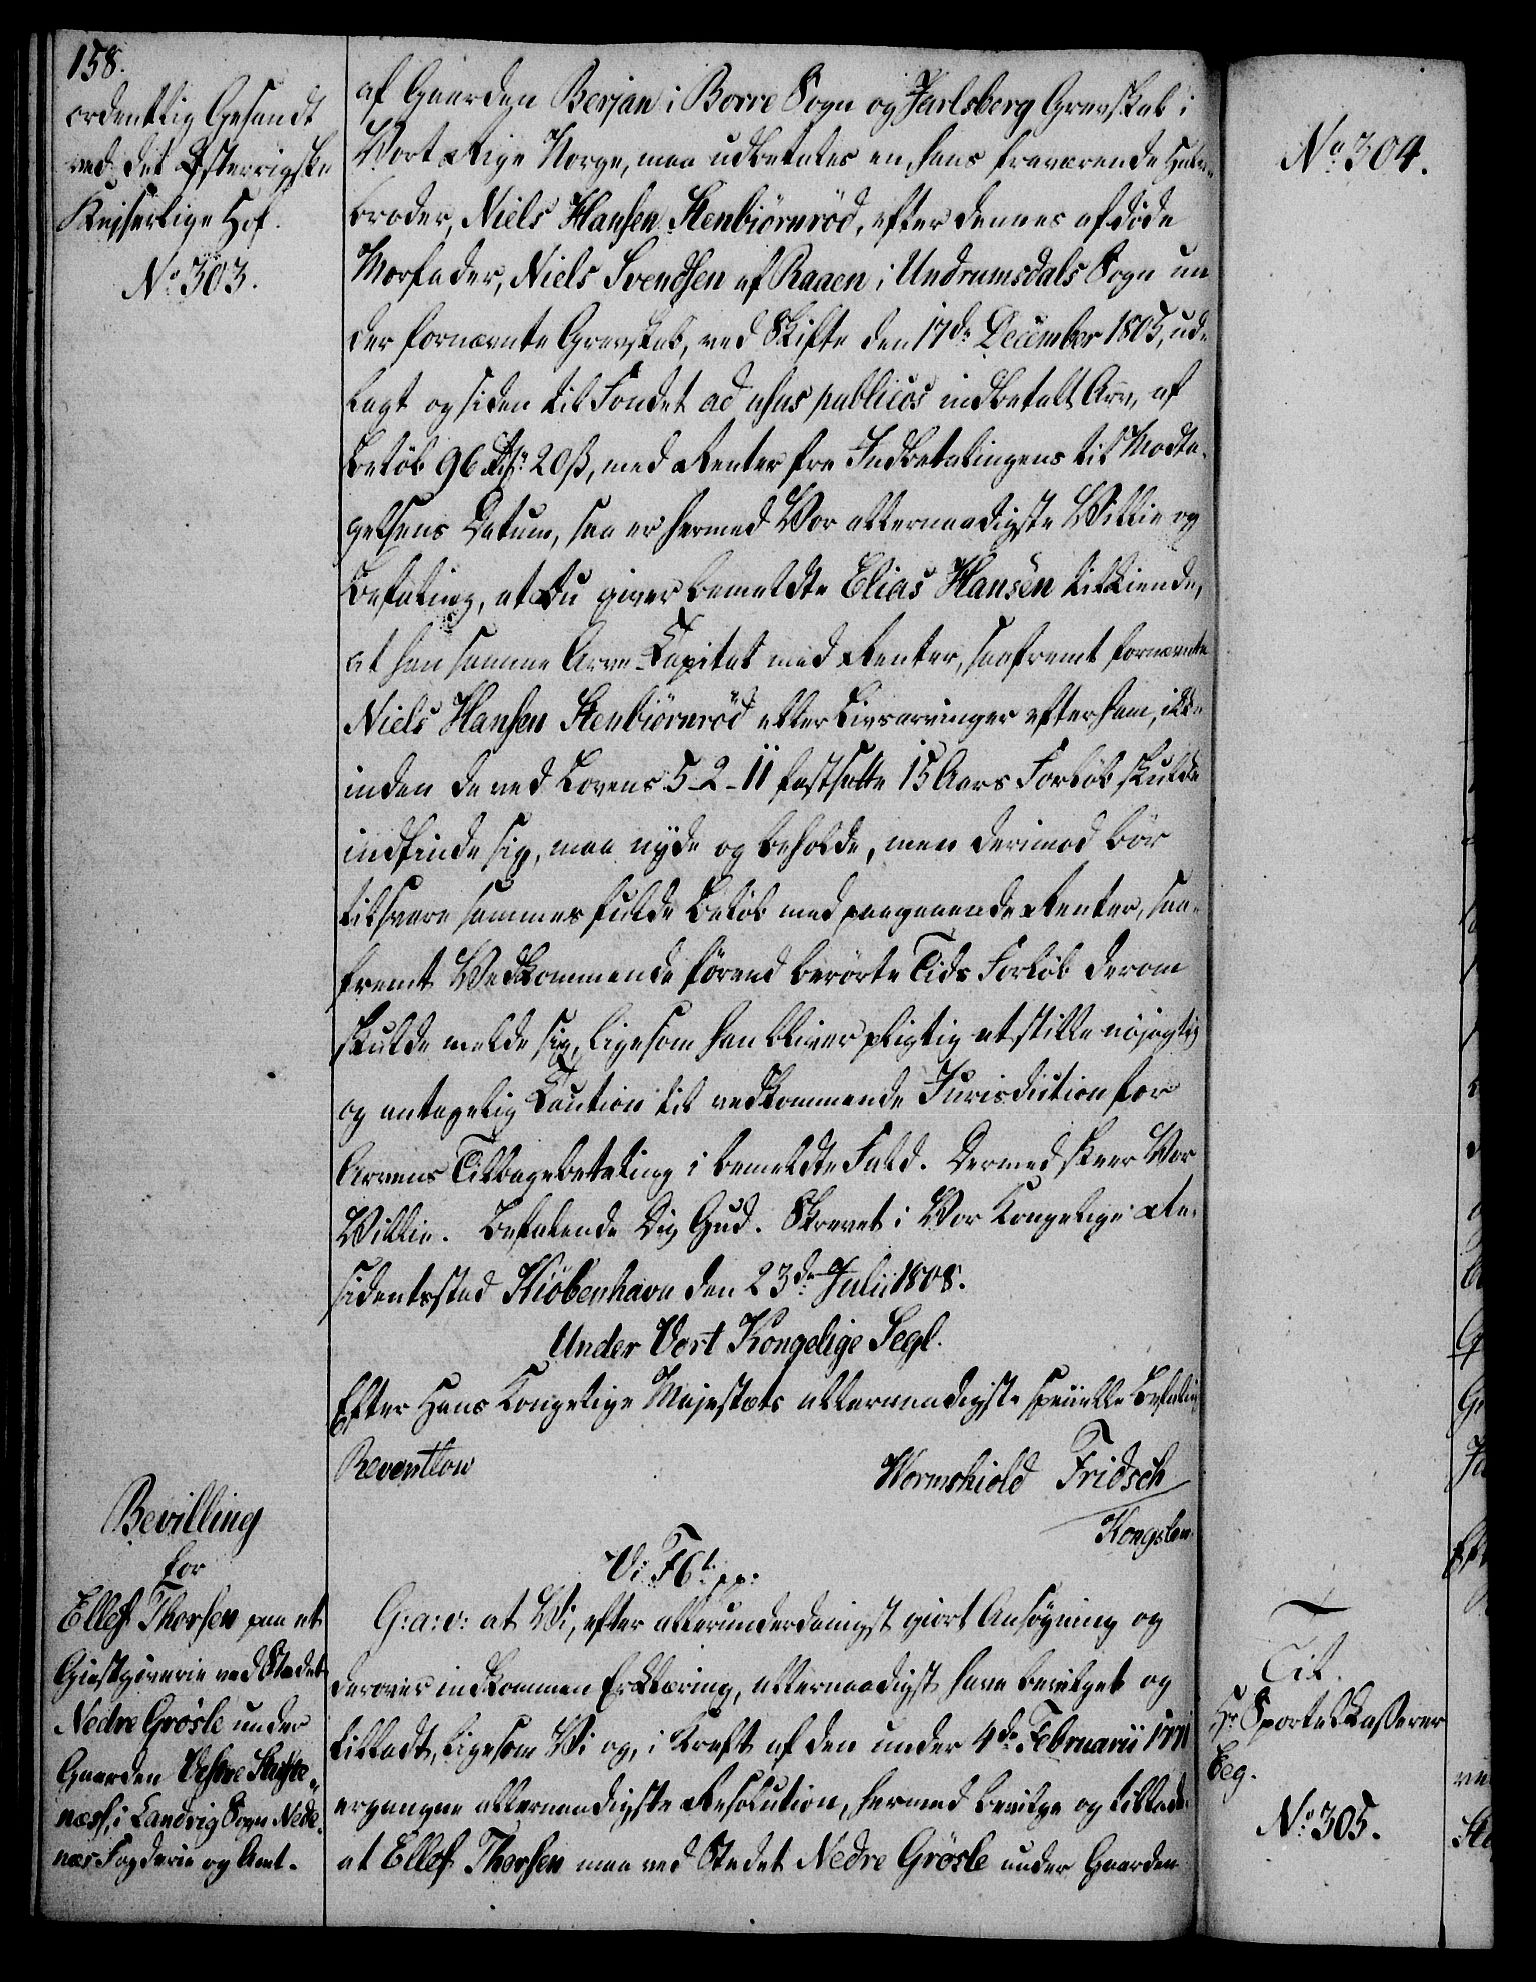 158.
ordentlig Gesandt
ved det Østerrigske
Keiserlige Hof.
No 303.
af Gaarden Berjan i Borre Sogn og Jarlsberg Grevskab i
Vort Rige Norge, maa udbetales en, hans fraværende Halv-
broder, Niels Hansen Stenbiørnrød, efter dennes afdøde
Morfader, Niels Svendsen af Raaen i Undrumsdals Sogn un
der fornævnte Grevskab, ved Skifte den 17de December 1805, ud-
lagt og siden til Fondet ad usus publicos indbetalt Arv, af
Beløb 96 Rdr 20 ß, med Renter fra Indbetalingens til Modta-
gelsens Datum, saa er hermed Vor allernaadigste Villie og
Befaling, at Du giver bemeldte Elias Hansen tilkiende,
at han samme Arve-Capital med Renter, saafremt fornævnte
Niels Hansen Stenbiørnrød eller Livsarvinger efter ham, ikke
inden de ved Lovens 5-2-11 fastsatte 15 Aars Forløb skulde
indfinde sig, maa nyde og beholde, men derimod bør
tilsvare sammes fulde Beløb med paagaaende Renter, saa-
fremt Vedkommende førend berørte Tids Forløb derom
skulde melde sig, ligesom han bliver pligtig at stille nøjagtig
og antagelig Caution til vedkommende Jurisdiction for
Arvens Tilbagebetaling i bemeldte Fald. Dermed skeer Vor
Villie. Befalende Dig Gud. Skrevet i Vor Kongelige Re-
sidentsstad Kiøbenhavn den 23de Julii 1808.
Under Vort Kongelige Segl.
Efter Hans Kongelige Majestæts allernaadigste specielle Befaling
Reventlow
Wormskiold Fridsch
Kongslev
Bevilling
for
Ellef Thorsen paa et
Giestgiverie ved Stedet
Nedre Grøsle under
Gaarden Vestre
næss, i Landvig Sogn Nede-
næs Fogderie og Amt.
Vi F 6t pp:
G: a: v: at Vi, efter allerunderdanigst giort Ansøgning og
derover indkommen Erklæring, allernaadigst have bevilget og
tilladt, ligesom Vi og, i Kraft af den under 4de Februarii 1771
ergangne allernaadigste Resolution, hermed bevilge og tillade
at Ellef Thorsen maa ved Stedet Nedre Grøsle under Gaarden
No 304.
Tit.
Hr Sportelkasserer
Beg.
No 305.